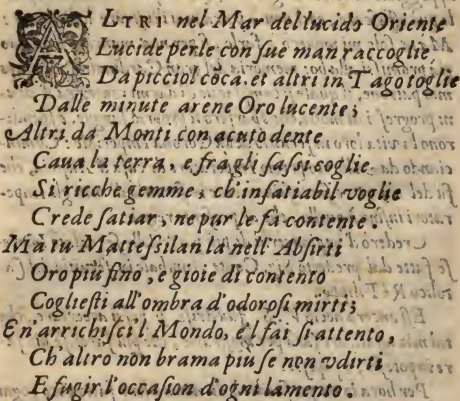 ALTRI nel Mar del lucido Oriente
Lucide perle con sue man raccoglie
Da picciol cõca. et altri in Tago toglie
Dalle minute arene Oro lucente;
Altri da Monti con acuto dente
Caua la terra, e fra gli sassi coglie
Si ricche gemme, ch'insatiabil voglie
Crede satiar, ne pur le fà contente.
Mà tu Mattessilanì la nell'Absirti
Oro più fino, e gioie di contento
Cogliesti all'ombra d'odorosi mirti;
E n'arrichisci'l Mondo, e'l fai sì attento,
Ch'altro non brama più se non vdirti
E fugir l'occasion d'ogni lamento.